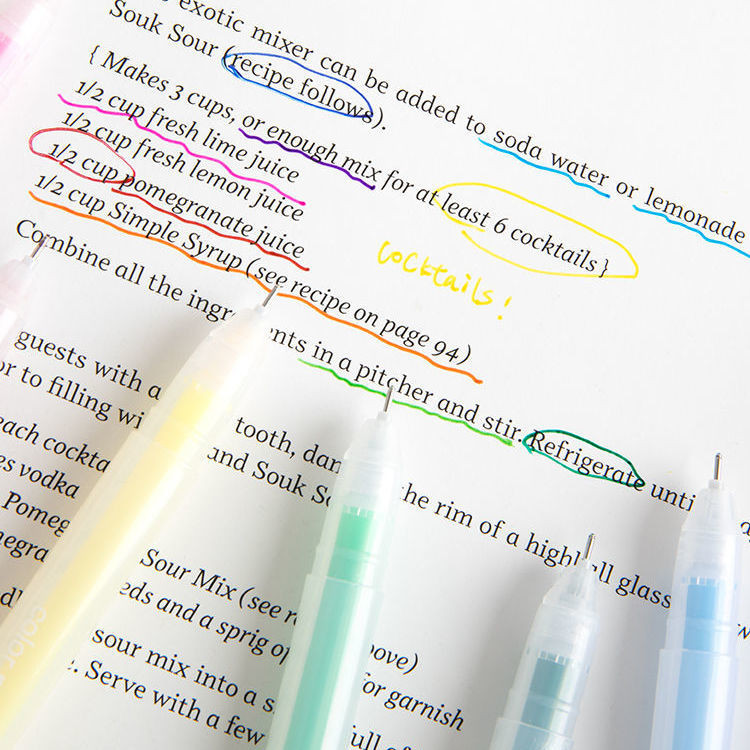 exotic mixer can be added to soda water or lemonade
Souk Sour (recipe follows).
{ Makes 3 cups, or enough mix for at least 6 cocktails }
1/2 cup fresh lime juice
1/2 cup fresh lemon juice
1/2 cup pomegranate juice
1/2 cup Simple Syrup (see recipe on page 94)
cocktails!
Combine all the ingre nts in a pitcher and stir. Refrigerate unti
guests with a tooth, dan he rim of a highball glass
or to filling wi und Souk S
each cockta
es vodka
Pomeg Sour Mix (see r ove)
negra eds and a sprig of for garnish
sour mix into a s
. Serve with a few full of
color